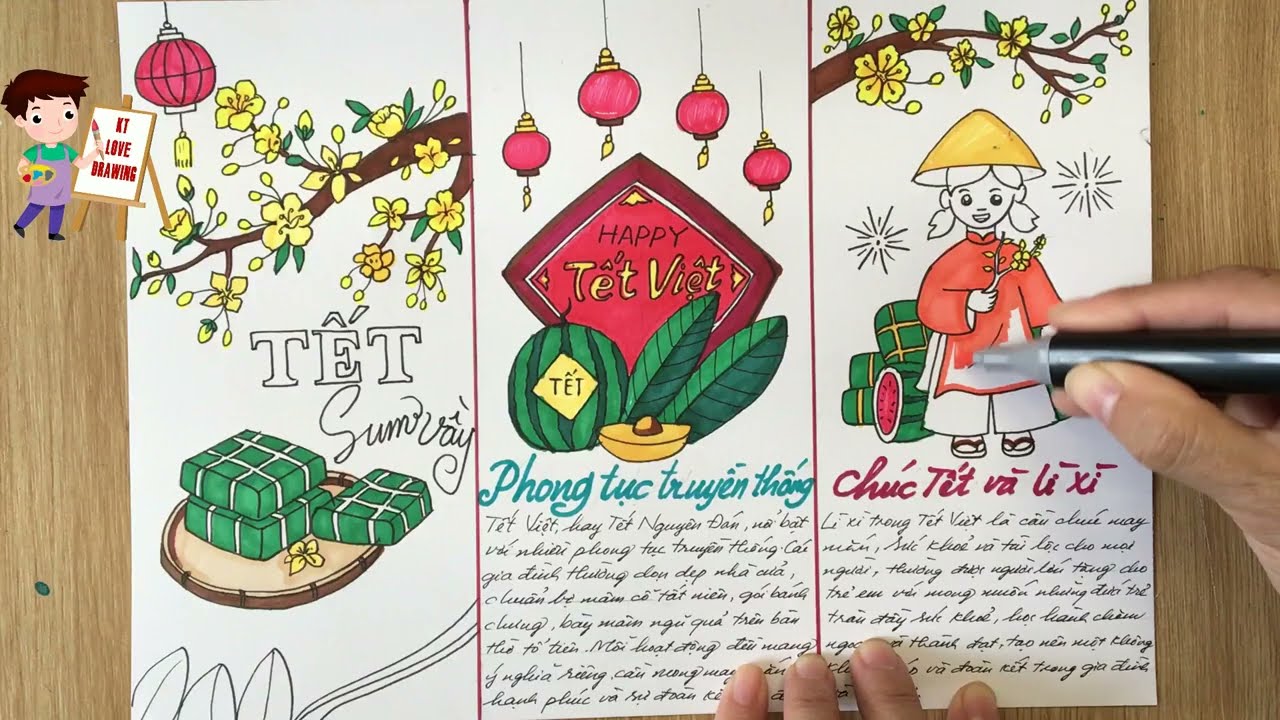 KT
LOVE
DRAWING
TẾT
Sum vầy
HAPPY
Tết Việt
TẾT
Phong tục truyền thống
Tết Việt, hay Tết Nguyên Đán, nổi bật
với nhiều phong tục truyền thống. Các
gia đình thường dọn dẹp nhà cửa,
chuẩn bị mâm cỗ tất niên, gói bánh
chưng, bày mâm ngũ quả trên bàn
thờ tổ tiên. Mỗi hoạt động đều mang
ý nghĩa riêng, cầu mong may
hạnh phúc và sự đoàn kết
Chúc Tết và lì xì
Lì xì trong Tết Việt là cầu chúc may
mắn, sức khoẻ và tài lộc cho mọi
người, thường được người lớn tặng cho
trẻ em với mong muốn những đứa trẻ
tràn đầy sức khoẻ, học hành chăm
thành đạt, tạo nên một không
và đoàn kết trong gia đình